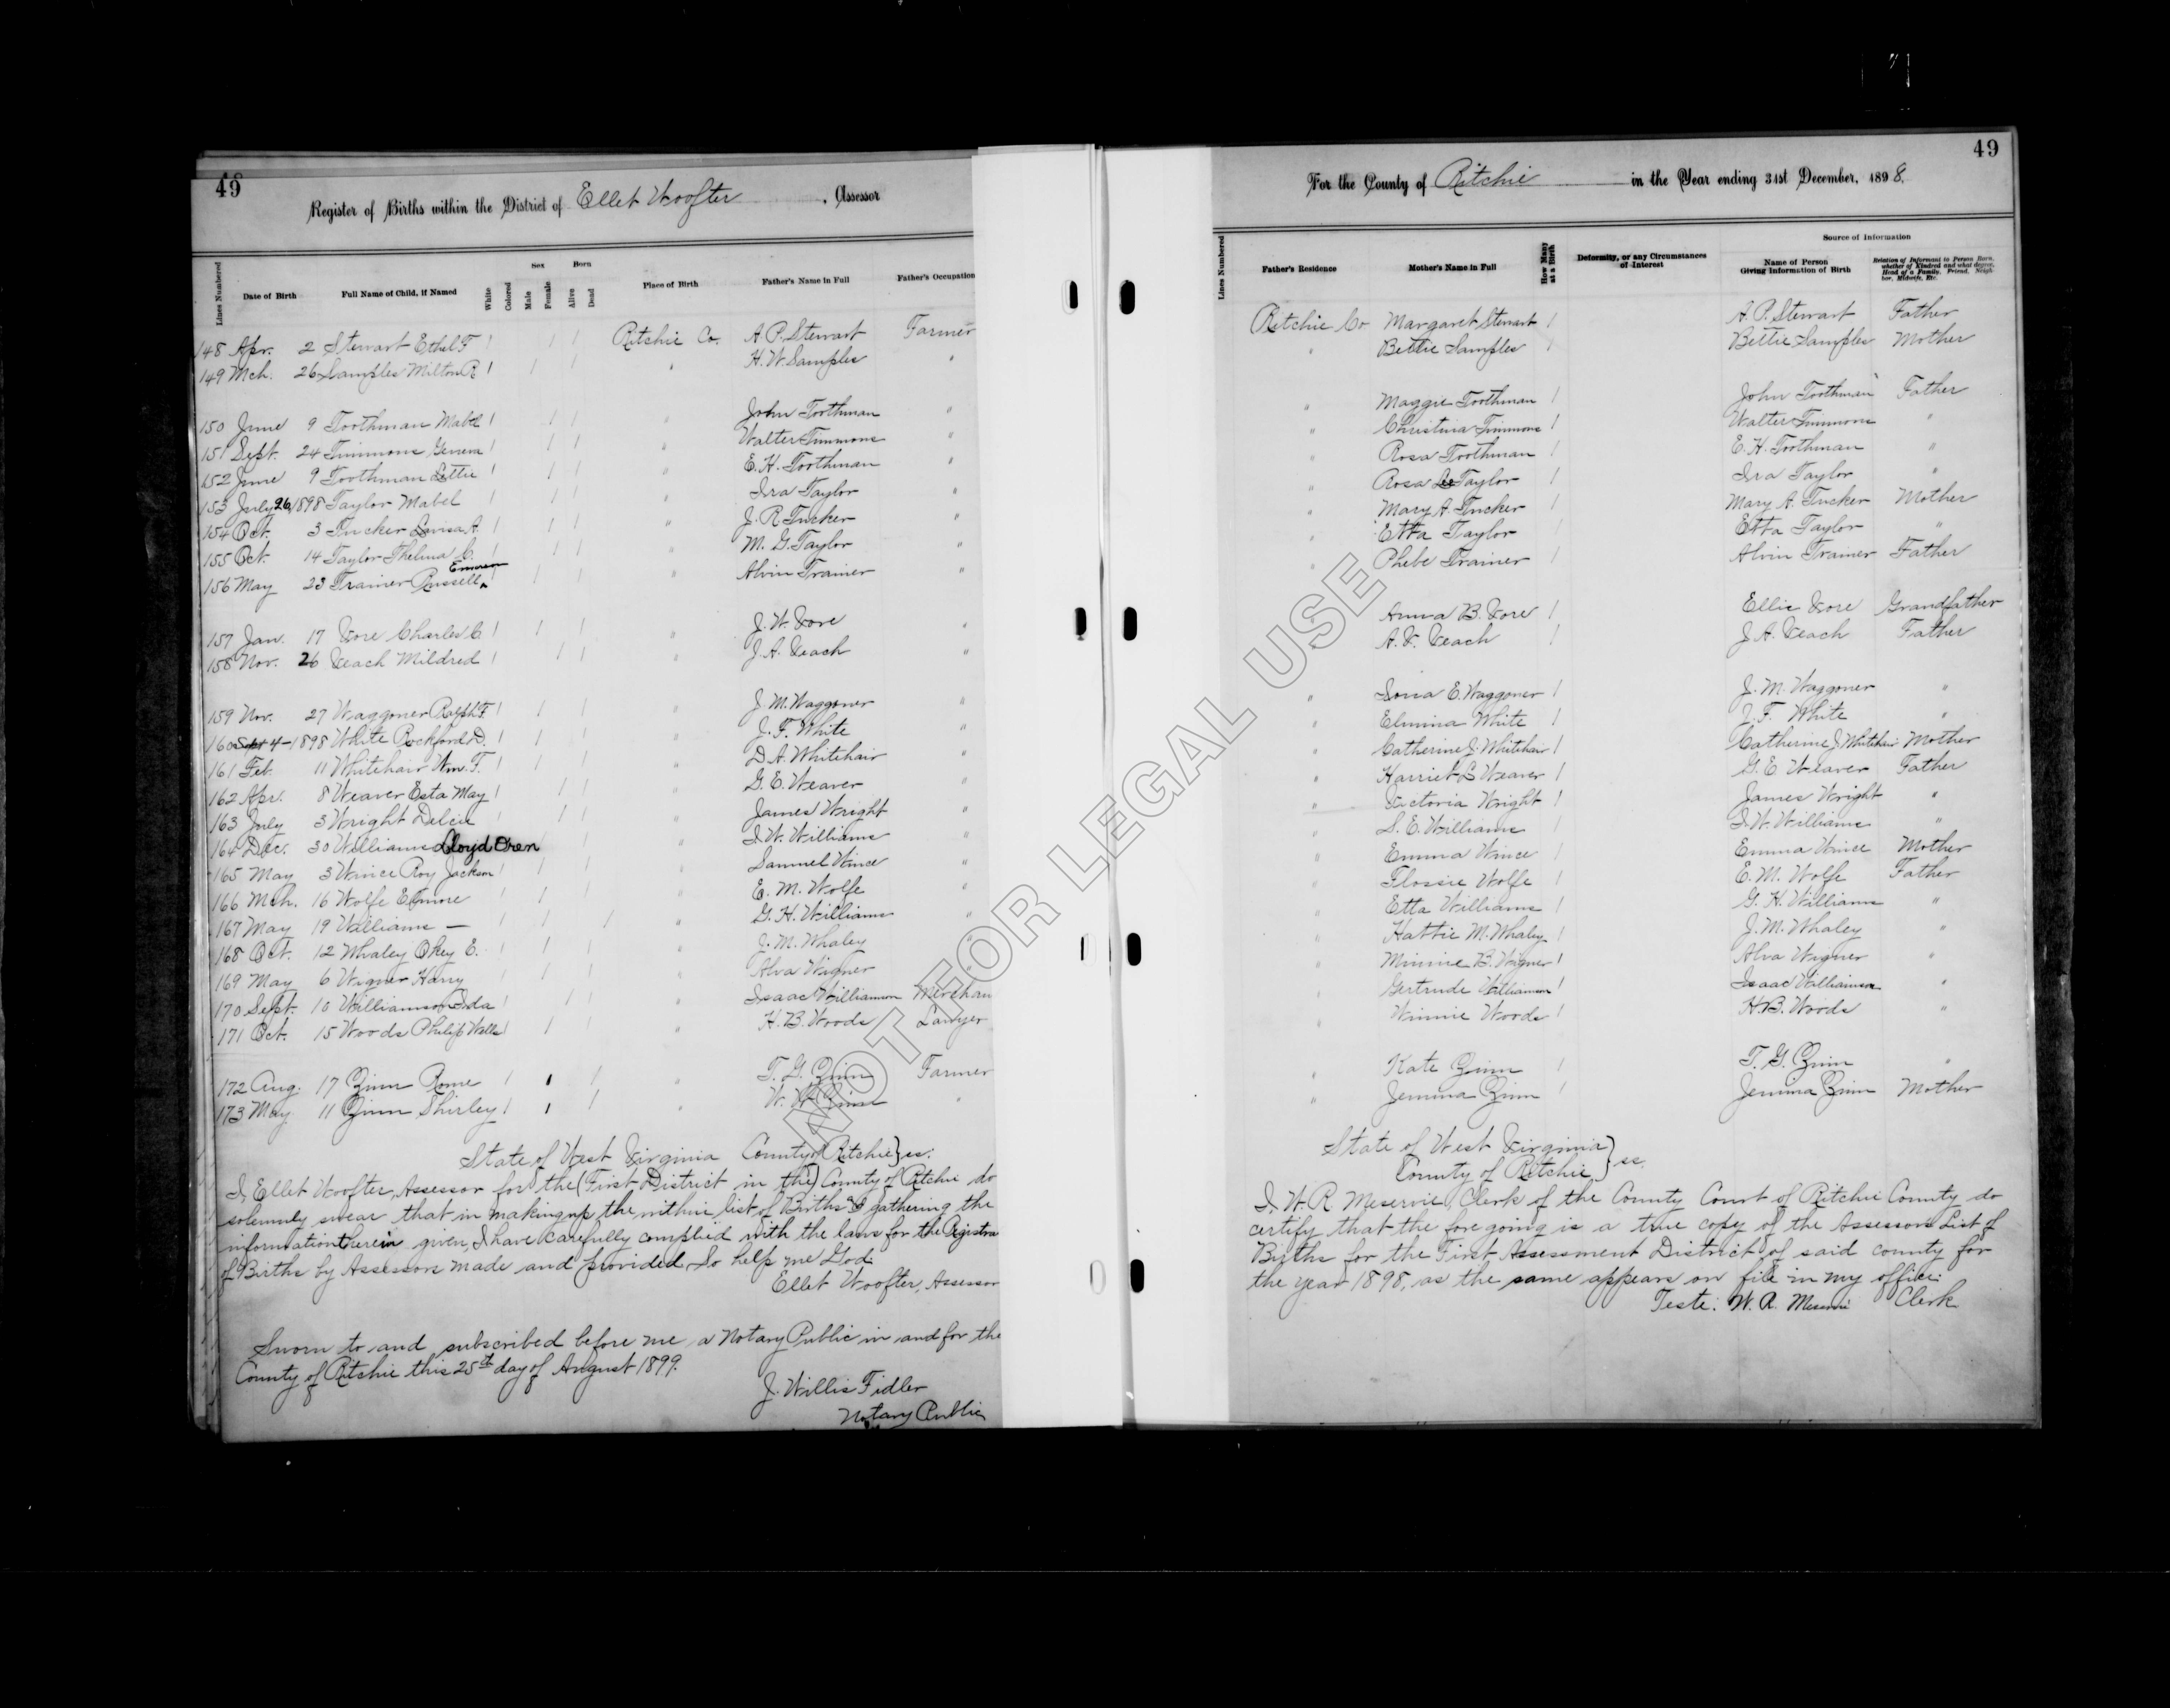 49
Register of Births within the District of Ellet Woofter, Assessor
Lines Numbered
Date of Birth
Full Name of Child, if Named
White
Colored
Sex
Male
Female
Born
Alive
Dead
Place of Birth
Father's Name in Full
Father's Occupation
148 Apr. 2 Stewart Ethel F 1 1 1 Ritchie Co. A. P. Stewart Farmer
149 Mch. 26 Samples Milton R 1 1 1 " H. W. Samples "
150 June 9 Toothman Mabel 1 1 1 " John Toothman "
151 Sept. 24 Timmons 1 1 1 " Walter Timmons "
152 June 9 Toothman Lettie 1 1 1 " E. H. Toothman "
153 July 26, 1898 Taylor Mabel 1 1 1 " Ira Taylor "
154 Oct. 3 Tucker Lovisa A. 1 1 1 " J. R. Tucker "
155 Oct. 14 Taylor Thelma C. 1 1 1 " M. G. Taylor "
156 May 23 Trainer Russell ^ Emerson 1 1 1 " Alvin Trainer "
157 Jan. 17 Vore Charles C. 1 1 1 " J. W. Vore "
158 Nov. 26 Veach Mildred 1 1 1 " J. A. Veach "
159 Nov. 27 Waggoner Ralph F. 1 1 1 " J. M. Waggoner "
160 Sept 4-1898 White Rockford D. 1 1 1 " J. F. White "
161 Feb. 11 Whitehair Wm. T. 1 1 1 " D. A. Whitehair "
162 Apr. 8 Weaver Esta May 1 1 1 " G. E. Weaver "
163 July 3 Wright Delcie 1 1 1 " James Wright "
164 Dec. 30 Williams Lloyd Oren 1 1 " I. W. Williams "
165 May 3 Wince Roy Jackson 1 1 1 " Samuel Wince "
166 Mch. 16 Wolfe Elmore 1 1 1 " E. M. Wolfe "
167 May 19 Williams — 1 1 1 " G. H. Williams "
168 Oct. 12 Whaley Okey E. 1 1 1 " J. M. Whaley "
169 May 6 Wigner Harry 1 1 1 " Alva Wigner "
170 Sept. 10 Williamson Ida 1 1 1 " Isaac Williamson Merchan
171 Oct. 15 Woods Philip Wells 1 1 1 " H. B. Woods Lawyer
172 Aug. 17 Zinn Rome 1 1 1 " T. G. Zinn Farmer
173 May 11 Zinn Shirley 1 1 1 " W. W. Zinn "
State of West Virginia County of Ritchie } ss:
I, Ellet Woofter, Assessor for the (First District in the) County of Ritchie do
solemnly swear that in making up the within list of Births & gathering the
information therein given, I have carefully complied with the laws for the Registra
of Births by Assessors made and provided. So help me God.
Ellet Woofter, Assessor
Sworn to and subscribed before me, a Notary Public in and for the
County of Ritchie this 25th day of August 1899.
J. Willis Fidler
Notary Public
49
For the County of Ritchie in the Year ending 31st December, 1898.
Lines Numbered
Father's Residence
Mother's Name in Full
How Many at a Birth
Deformity, or any Circumstances of Interest
Source of Information
Name of Person Giving Information of Birth
Relation of Informant to Person Born, whether of Kindred and what degree, Head of a Family, Friend, Neighbor, Midwife, Etc.
Ritchie Co Margaret Stewart 1 A. P. Stewart Father
" Bettie Samples 1 Bettie Samples Mother
" Maggie Toothman 1 John Toothman Father
" Christina Timmons 1 Walter Timmons "
" Rosa Toothman 1 E. H. Toothman "
" Rosa Taylor 1 Ira Taylor "
" Mary A. Tucker 1 Mary A. Tucker Mother
" Etta Taylor 1 Etta Taylor "
" Phebe Trainer 1 Alvin Trainer Father
" Anna B. Vore 1 Ellie Vore Grandfather
" A. V. Veach 1 J. A. Veach Father
" Iona E. Waggoner 1 J. M. Waggoner "
" Elmina White 1 J. F. White "
" Catherine J. Whitehair 1 Catherine J Whitehair Mother
" Harriet L Weaver 1 G. E. Weaver Father
" Victoria Wright 1 James Wright "
" S. E. Williams 1 I. W. Williams "
" Emma Wince 1 Emma Wince Mother
" Flossie Wolfe 1 E. M. Wolfe Father
" Etta Williams 1 G. H. Williams "
" Hattie M. Whaley 1 J. M. Whaley "
" Minnie B. Wigner 1 Alva Wigner "
" Gertrude Williamson 1 Isaac Williamson "
" Winnie Woods 1 H. B. Woods "
" Kate Zinn 1 T. G. Zinn "
" Jemima Zinn 1 Jemima Zinn Mother
State of West Virginia }
County of Ritchie } ss.
I, W. R. Meservie, Clerk of the County Court of Ritchie County do
certify that the fore going is a true copy of the Assessors List of
Births for the First Assessment District of said county for
the year 1898, as the same appears on file in my office.
Teste: W. R. Meservie Clerk
NOT FOR LEGAL USE